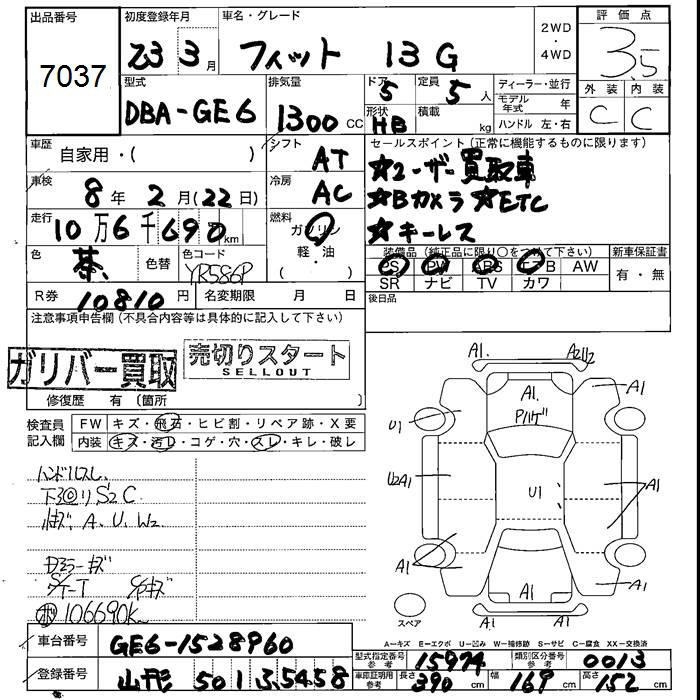 出品番号
7037
初度登録年月
23 3 月
車名・グレード
フィット 13 G
2WD
・
4WD
評価点
3.5
外装 内装
C C
型式
DBA-GE6
排気量
1300 CC
ドア
5
形状
HB
定員
5 人
積載
kg
ディーラー・並行
モデル年式 年
ハンドル 左・右
車歴
自家用・( )
シフト
AT
車検
8 年 2 月(22日)
冷房
AC
走行
10 万 6 千 690 km
燃料
ガソリン
軽・油
( )
色
茶
色替
色コード
YR586P
R券 10810 円 名変期限 月 日
セールスポイント(正常に機能するものに限ります)
☆ユーザー買取車
☆Bカメラ ☆ETC
☆キーレス
装備品(純正品に限り○をつけて下さい)
PS PW ABS エアB AW
SR ナビ TV カワ
新車保証書
有・無
後日品
注意事項申告欄(不具合内容等は具体的に記入して下さい)
ガリバー買取
売切りスタート
SELLOUT
修復歴 有 〔箇所 〕
検査員
記入欄
FW キズ・飛石・ヒビ割・リペア跡・X要
内装 キズ・汚レ・コゲ・穴・スレ・キレ・破レ
ハンドルスレ
下回り S2 C
A、U、W2
106690K
A1 A2U2
A1
A1
U1
U2A1
U1
A1
A1
A1
A1
A1
スペア
A—キズ E—エクボ U—凹み W—補修跡 S—サビ C—腐食 XX—交換済
車台番号 GE6-1528960
登録番号 山形 501 ふ 5458
型式指定番号 参考 15974
類別区分番号 参考 0013
車庫証明用 参考 長さ 390 cm 幅 169 cm 高さ 152 cm